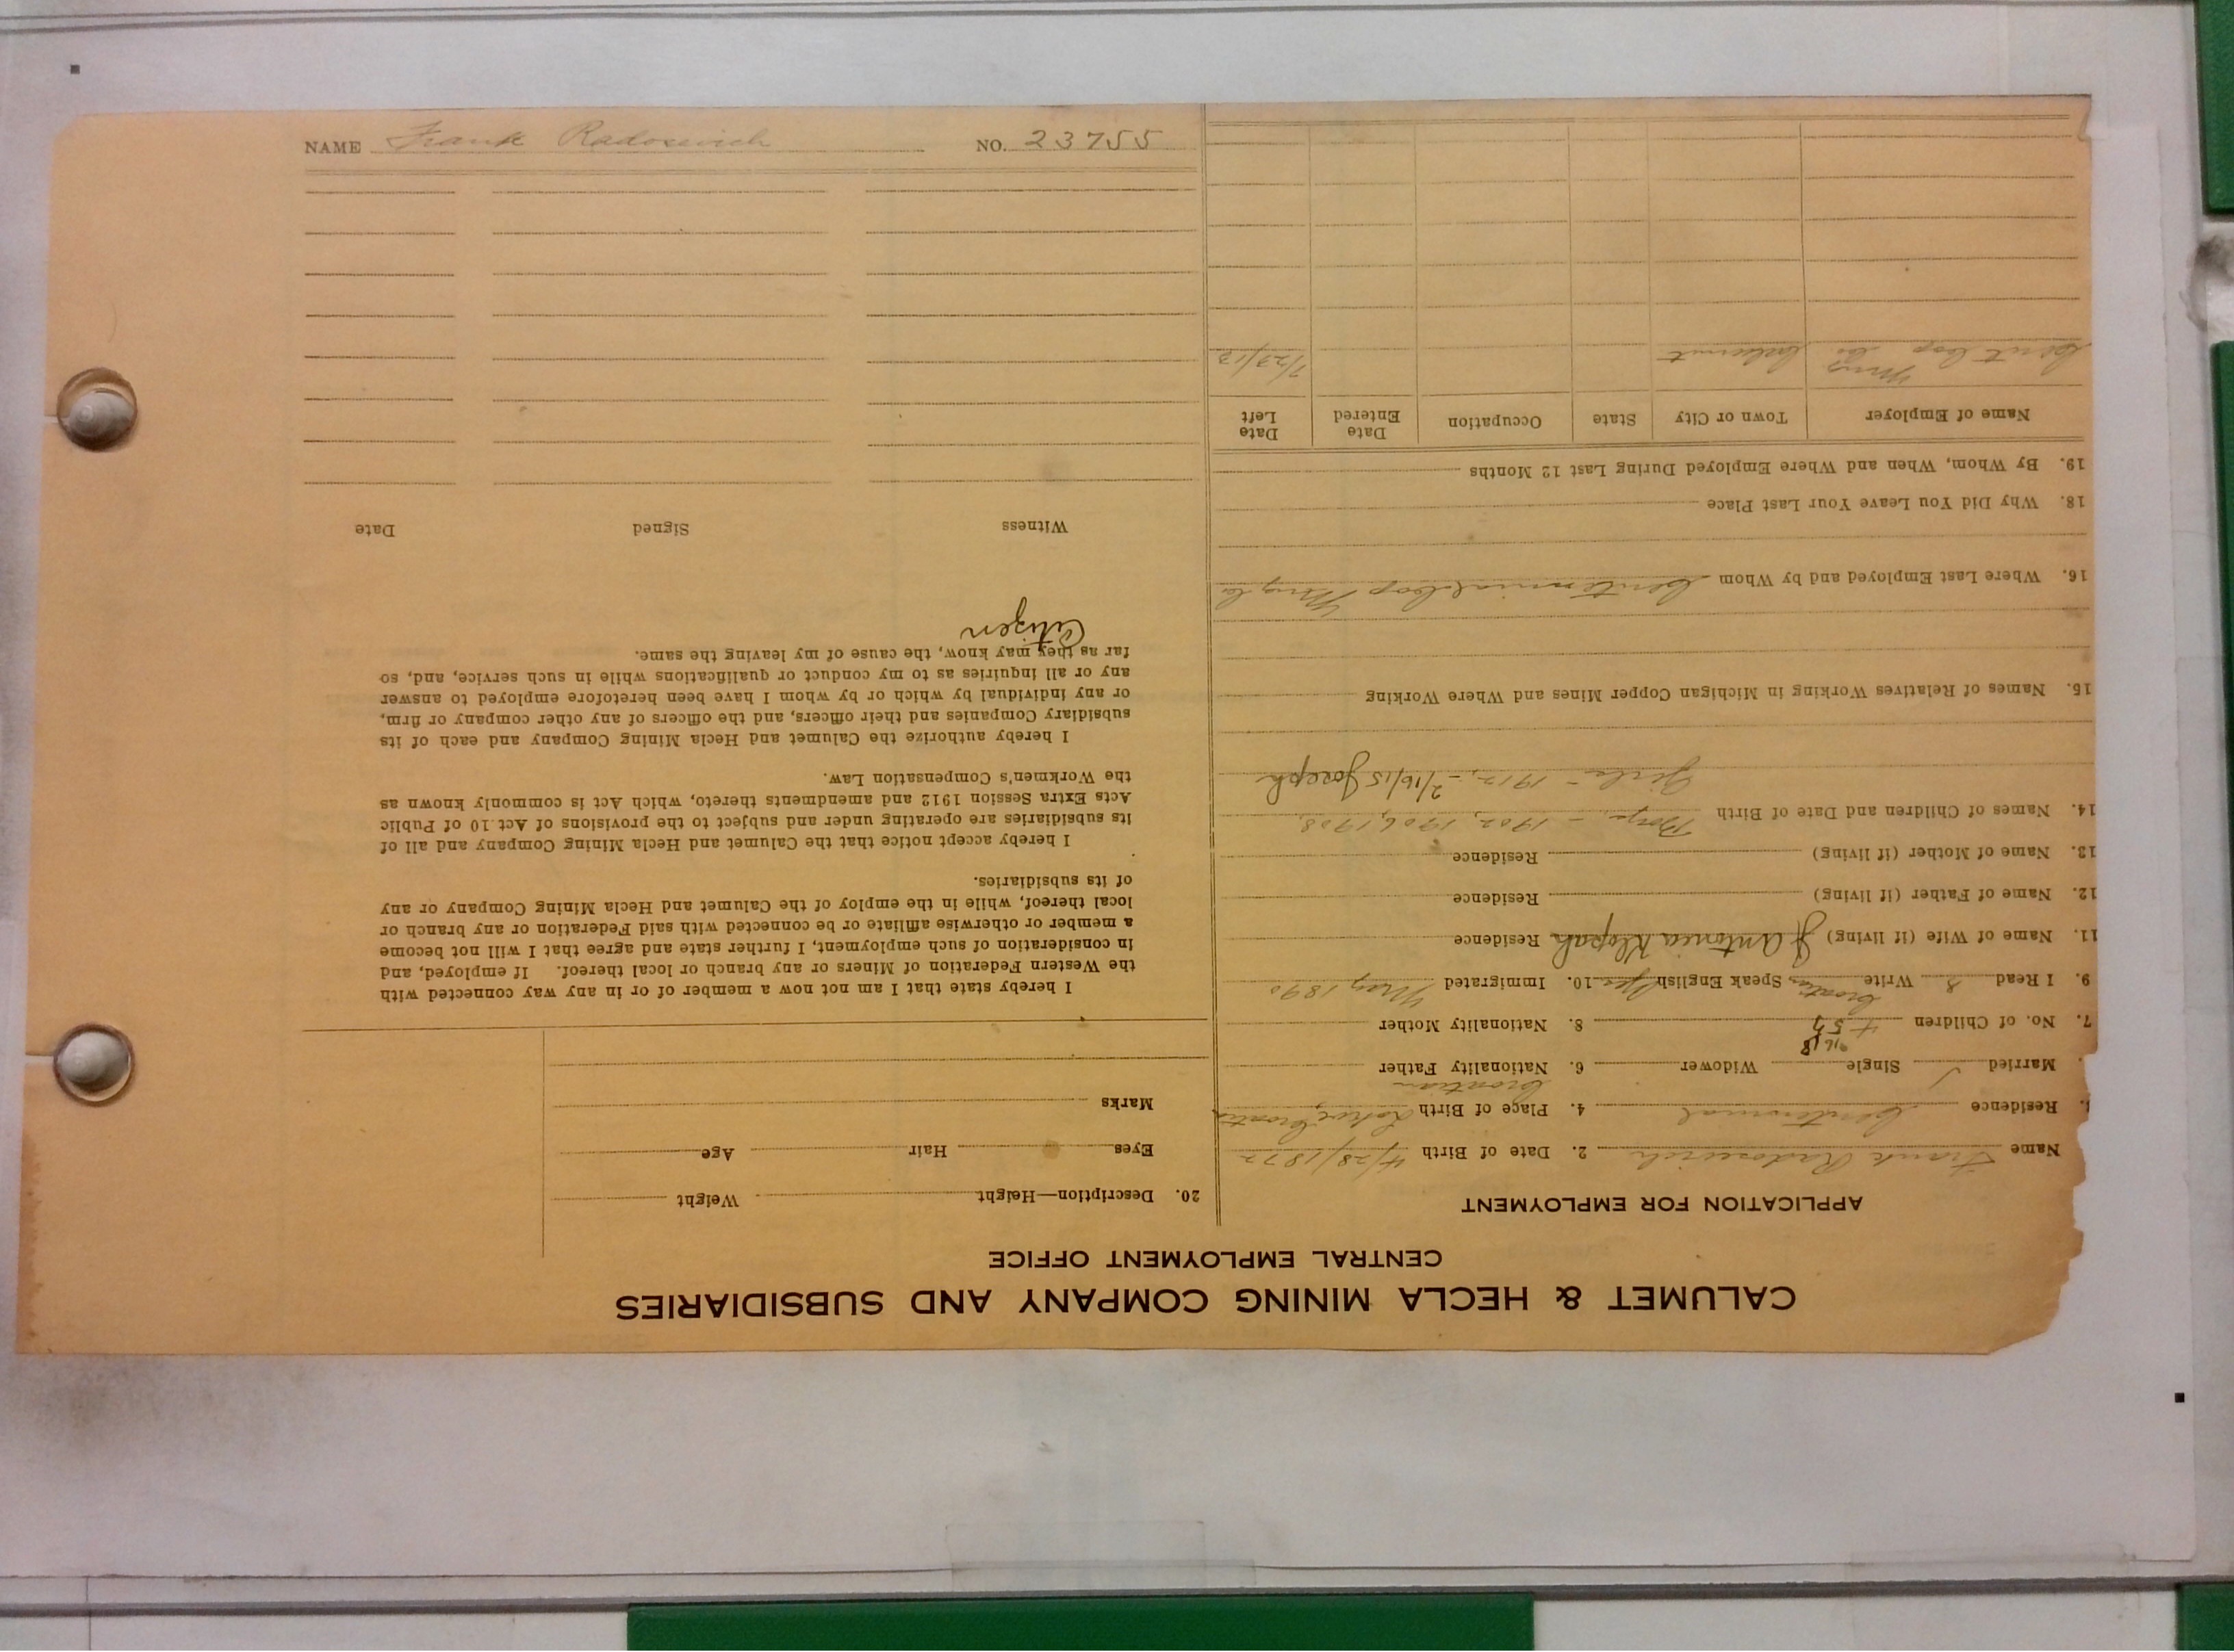 CALUMET & HECLA MINING COMPANY AND SUBSIDIARIES
CENTRAL EMPLOYMENT OFFICE
APPLICATION FOR EMPLOYMENT
Name Frank Radosevich 2. Date of Birth 4/28/1872
Residence Centennial 4. Place of Birth Croatia
Married Single Widower 6. Nationality Father Croatian
7. No. of Children 4 5 8. Nationality Mother
9. I Read Write Croatian Speak English Yes 10. Immigrated May 1890
11. Name of Wife (if living) Antonia Klopah Residence
12. Name of Father (if living) Residence
13. Name of Mother (if living) Residence
14. Names of Children and Date of Birth Boys - 1902, 1906, 1908
Girls - 1912, - 2/16/15 Joseph
15. Names of Relatives Working in Michigan Copper Mines and Where Working
16. Where Last Employed and by Whom Centennial Cop Mng Co
18. Why Did You Leave Your Last Place
19. By Whom, When and Where Employed During Last 12 Months
Name of Employer Town or City State Occupation Date Entered Date Left
Cent Cop Mng Co Calumet 7/23/13
20. Description—Height Weight
Eyes Hair Age
Marks
I hereby state that I am not now a member of or in any way connected with
the Western Federation of Miners or any branch or local thereof. If employed, and
in consideration of such employment, I further state and agree that I will not become
a member or otherwise affiliate or be connected with said Federation or any branch or
local thereof, while in the employ of the Calumet and Hecla Mining Company or any
of its subsidiaries.
I hereby accept notice that the Calumet and Hecla Mining Company and all of
its subsidiaries are operating under and subject to the provisions of Act 10 of Public
Acts Extra Session 1912 and amendments thereto, which Act is commonly known as
the Workmen's Compensation Law.
I hereby authorize the Calumet and Hecla Mining Company and each of its
subsidiary Companies and their officers, and the officers of any other company or firm,
or any individual by which or by whom I have been heretofore employed to answer
any or all inquiries as to my conduct or qualifications while in such service, and, so
far as they may know, the cause of my leaving the same.
Citizen
Witness Signed Date
NAME Frank Radosevich NO. 23755